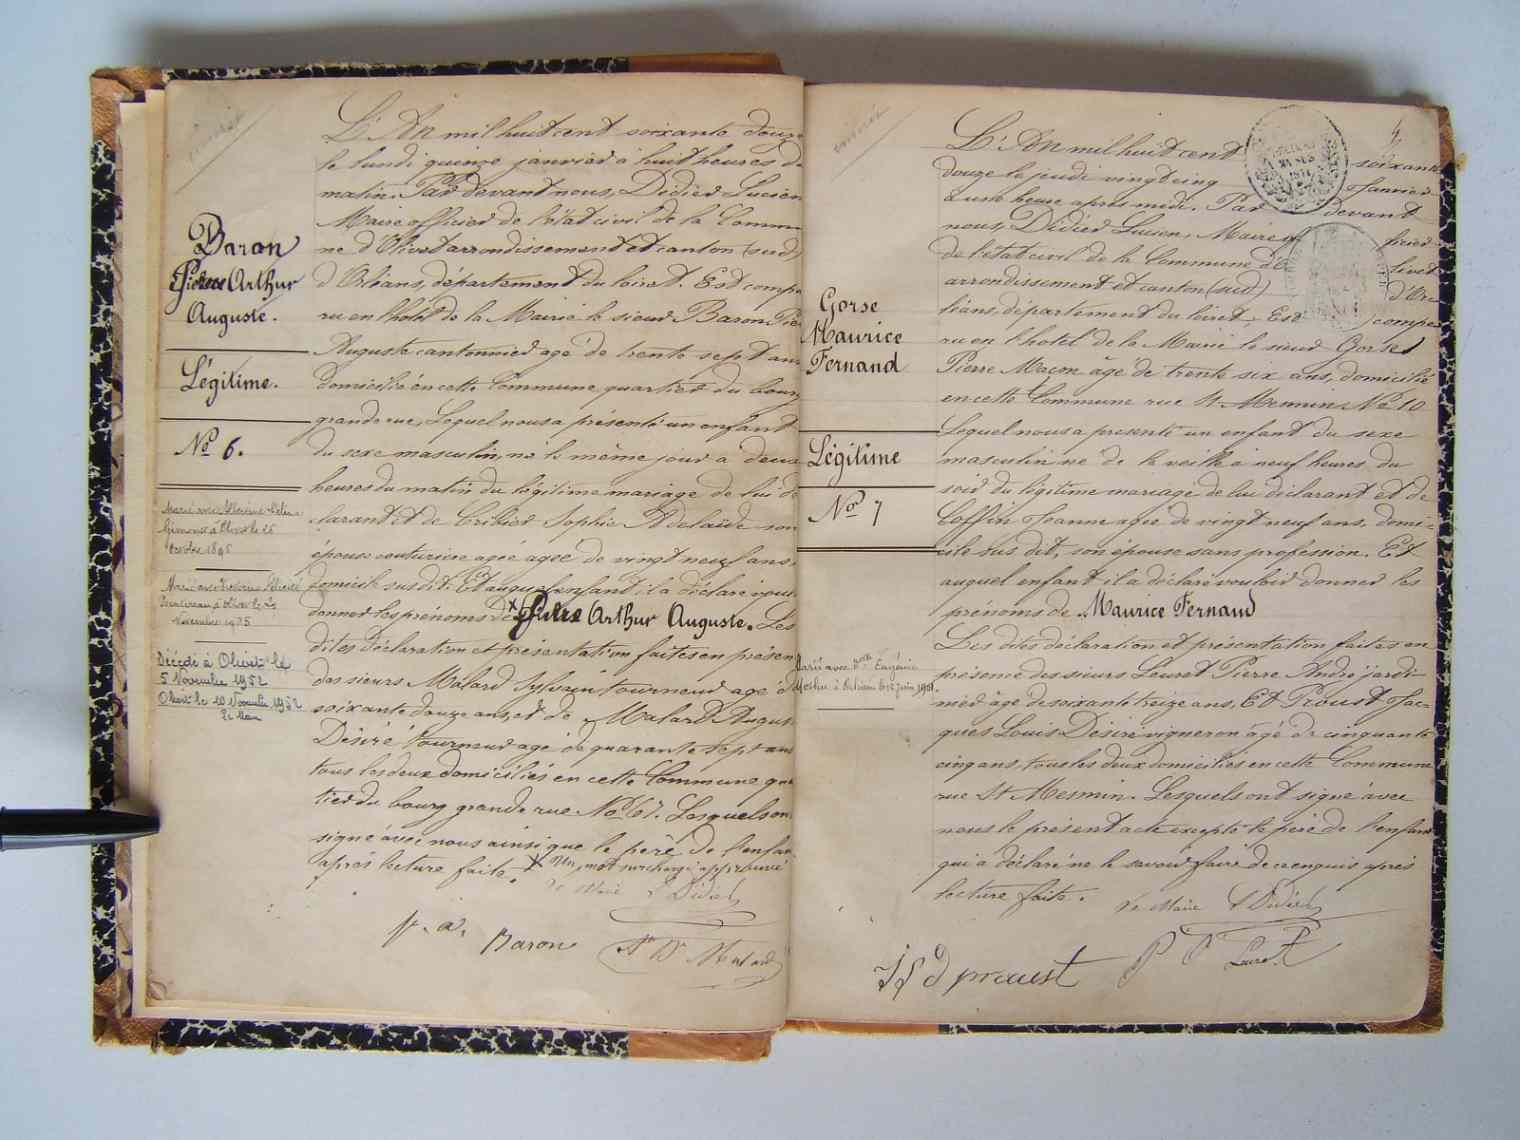 Baron
Pierre Arthur
Auguste.
Légitime.
No 6.
Marié avec
à Olivet le 26
octobre 1895
Marié avec
à Olivet le 23
Novembre 1925
Décédé à Olivet le
5 Novembre 1952
Olivet le 10 Novembre 1952
Le Maire
L'An mil huit cent soixante douze
le lundi quinze janvier à huit heures du
matin. Par devant nous, Didier Lucien
Maire officier de l'état civil de la Commu
ne d'Olivet arrondissement et canton (sud)
d'Orléans, département du Loiret. Est compa
ru en l'hôtel de la Mairie le sieur Baron Pier
Auguste cantonnier agé de trente sept ans
domicilié en cette Commune quartier du bourg
grande rue, Lequel nous a présenté un enfant
du sexe masculin, né le même jour à deux
heures du matin du légitime mariage de lui dé
clarant et de Sophie Adelaïde son
épouse couturière agée agée de vingt neuf ans,
domicile sus dit. Et auquel enfant il a déclaré vouloir
donner les prénoms de x Pierre Arthur Auguste. Les
dites déclaration et présentation faites en présen
des sieurs Malard Sylvain tourneur agé de
soixante douze ans, et de Malard August
Désiré tourneur agé de quarante sept ans
tous les deux domiciliés en cette Commune quar
tier du bourg grande rue No 67. Lesquels ont
signé avec nous ainsi que le père de l'enfant
après lecture faite. x Un, mot surchargé approuvé
Le Maire L Didier
p. a. Baron
Malard
Gorse
Maurice
Fernand
Légitime
No 7
Marié avec Eugénie
à Orléans le 12 Juin 1901.
L'An mil huit cent soixante
douze le jeudi vingt cinq Janvier
à une heure après midi. Par devant
nous, Didier Lucien, Maire officier
de l'état civil de la Commune d'Olivet
arrondissement et canton (sud) d'Or
léans, département du Loiret, Est compa
ru en l'hotel de la Mairie le sieur Gorse
Pierre Maçon âgé de trente six ans, domicilié
en cette Commune rue St Mesmin No 10
Lequel nous a présenté un enfant du sexe
masculin né de la veille à neuf heures du
soir du légitime mariage de lui déclarant et de
Coffin Jeanne agée de vingt neuf ans, domi-
cile sus dit, son épouse sans profession. Et
auquel enfant il a déclaré vouloir donner les
prénoms de Maurice Fernand
Les dites déclaration et présentation faites en
présence des sieurs Leuret Pierre André jardi
nier âgé de soixante treize ans, Et Proust Jac-
ques Louis Désiré vigneron âgé de cinquante
cinq ans, tous les deux domiciliés en cette Commune
rue St Mesmin. Lesquels ont signé avec
nous le présent acte excepté le père de l'enfant
qui a déclaré ne le savoir faire de ce enquis après
lecture faite.
Le Maire L Didier
J L D proust